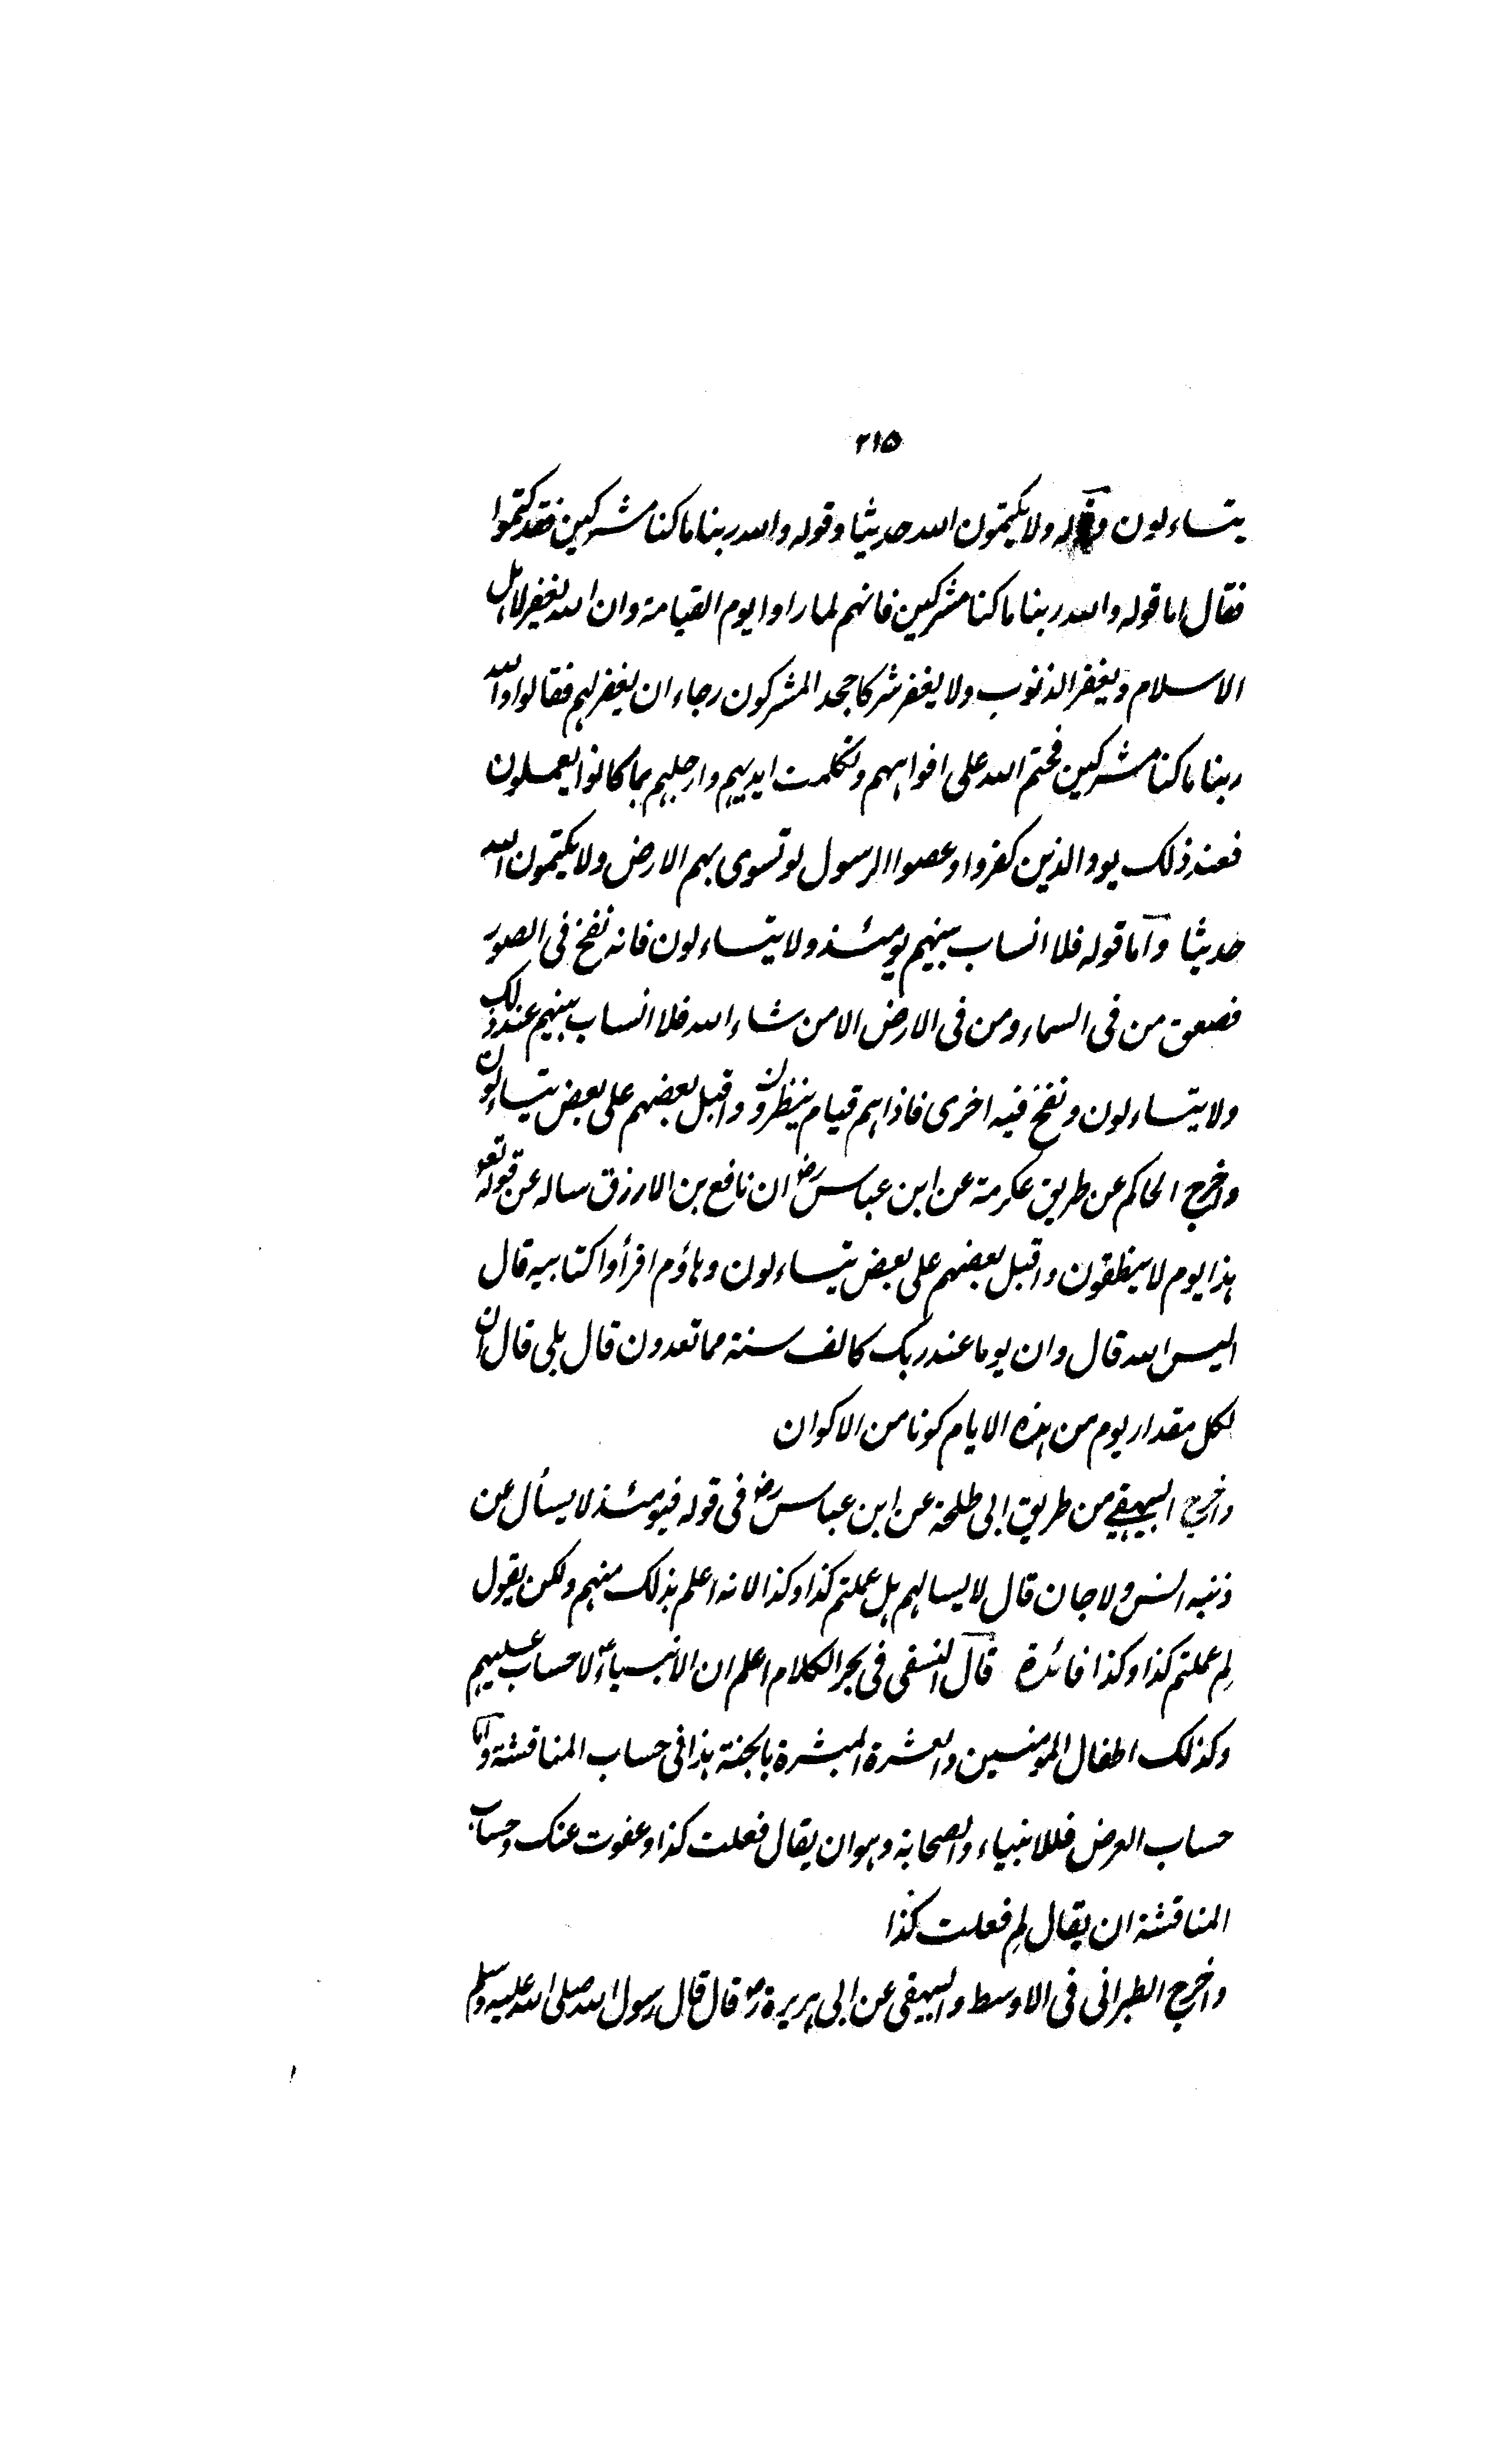 ٢١٥
يتساءلون وقوله ولا يكتمون الله حديثا وقوله والله ربنا ما كنا مشركين فقد كتموا
فقال اما قوله والله ربنا ما كنا مشركين فانهم لما راوا يوم القيامة وان الله يغفر لاهل
الاسلام ويغفر الذنوب ولا يغفر شركا جحد المشركون رجاء ان يغفر لهم فقالوا والله
ربنا ما كنا مشركين فختم الله على افواههم وتكلمت ايديهم وارجلهم بما كانوا يعملون
فعند ذلك يود الذين كفروا وعصوا الرسول لو تسوى بهم الارض ولا يكتمون الله
حديثا واما قوله فلا انساب بينهم يومئذ ولا يتساءلون فانه نفخ فى الصور
فصعق من فى السماء ومن فى الارض الا من شاء الله فلا انساب بينهم عند ذلك
ولا يتساءلون ونفخ فيه اخرى فاذا هم قيام ينظرون واقبل بعضهم على بعض يتساءلون
واخرج الحاكم عن طريق عكرمة عن ابن عباس رض ان نافع بن الارزق ساله عن قوله تعو
هذا يوم لا ينطقون واقبل بعضهم على بعض يتساءلون وهاؤم اقرأوا كتابيه قال
اليس الله قال وان يوما عند ربك كالف سنة مما تعدون قال بلى قال ان
لكل مقدار يوم من هذه الايام كونا من الاكوان
واخرج البيهقي من طريق ابى طلحة عن ابن عباس رض فى قوله فيومئذ لا يسأل عن
ذنبه انس ولا جان قال لا يسالهم هل عملتم كذا وكذا لانه اعلم بذلك منهم ولكن يقول
لِم عملتم كذا وكذا فائدة قال النسفى فى بحر الكلام اعلم ان الانبياء لا حساب عليهم
وكذلك اطفال المومنين والعشرة المبشرة بالجنة هذا فى حساب المناقشة واما
حساب العرض فللانبياء والصحابة وهو ان يقال فعلت كذا وعفوت عنك وحساب
المناقشة ان يقال لِم فعلت كذا
واخرج الطبرانى فى الاوسط والبيهقى عن ابى هريرة رض قال قال رسول الله صلى الله عليه وسلم